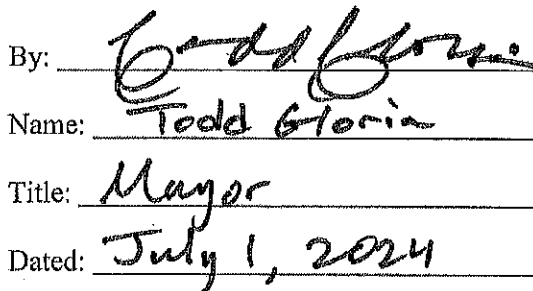 By: Todd Gloria
Name: Todd Gloria
Title: Mayor
Dated: July 1, 2024